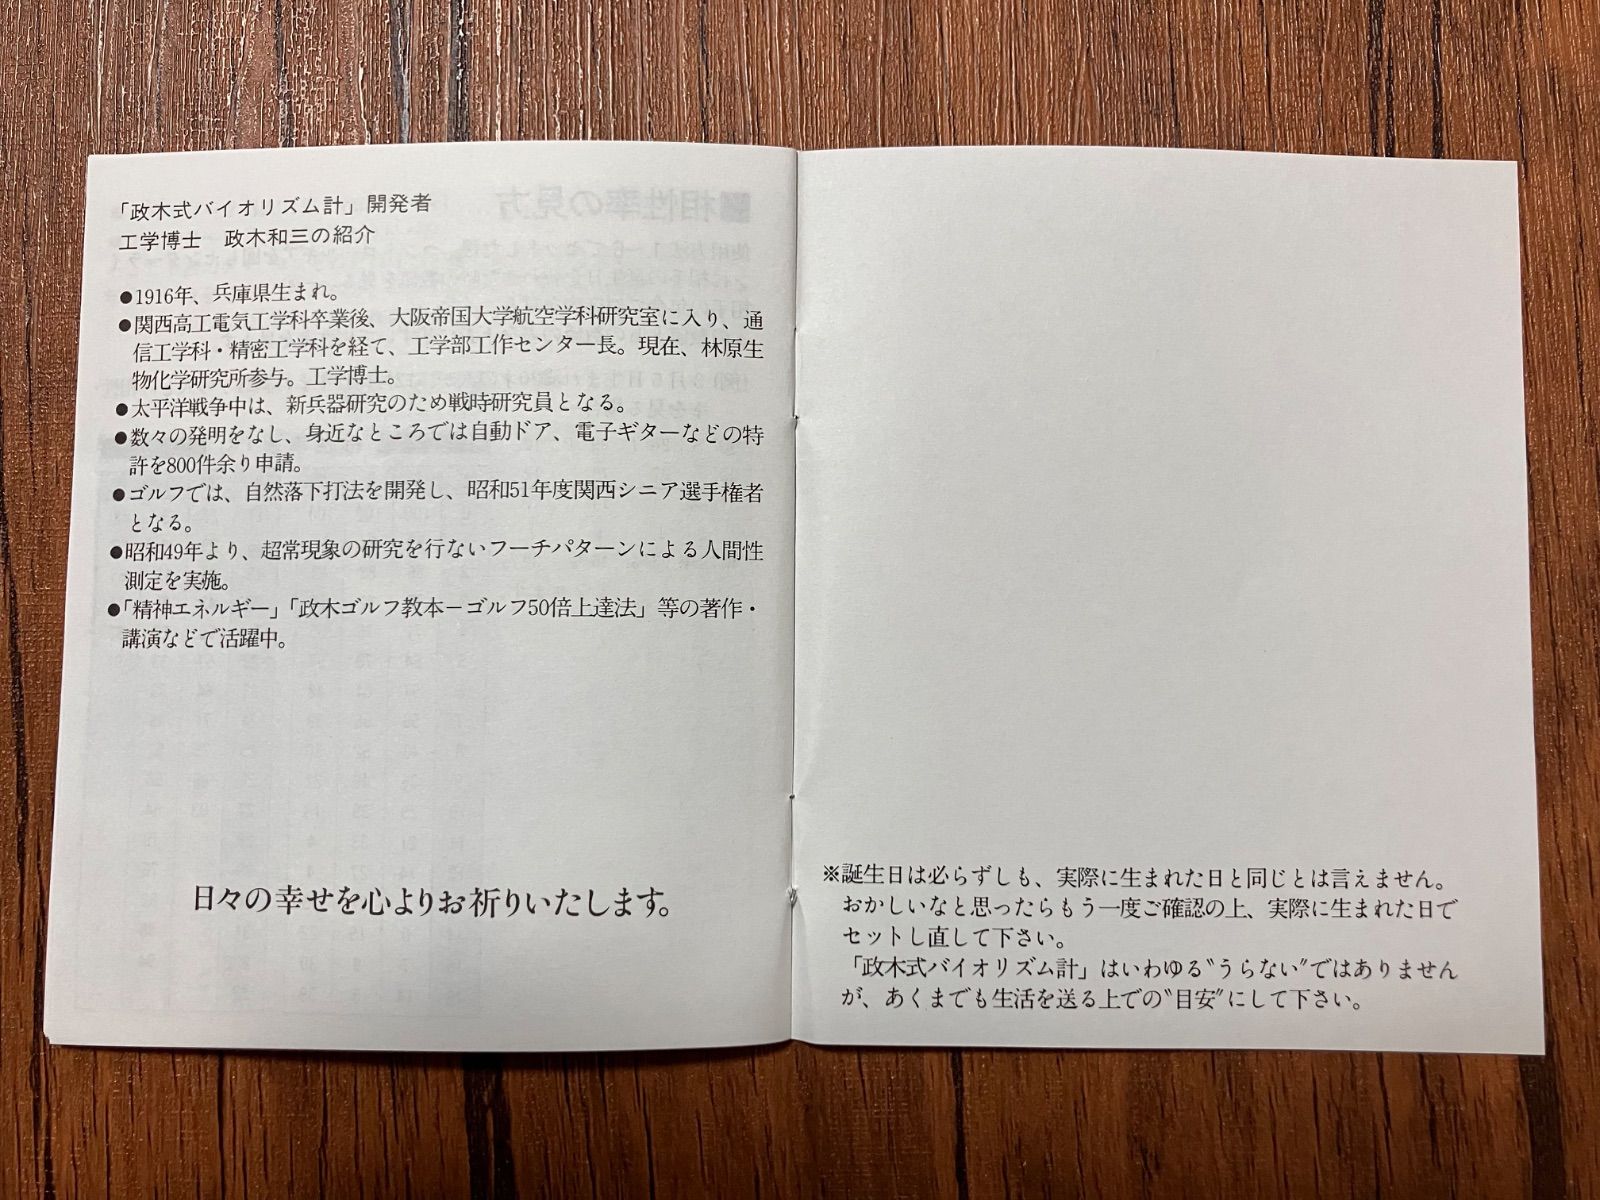 「政木式バイオリズム計」開発者
工学博士　政木和三の紹介
●1916年、兵庫県生まれ。
●関西高工電気工学科卒業後、大阪帝国大学航空学科研究室に入り、通
信工学科・精密工学科を経て、工学部工作センター長。現在、林原生
物化学研究所参与。工学博士。
●太平洋戦争中は、新兵器研究のため戦時研究員となる。
●数々の発明をなし、身近なところでは自動ドア、電子ギターなどの特
許を800件余り申請。
●ゴルフでは、自然落下打法を開発し、昭和51年度関西シニア選手権者
となる。
●昭和49年より、超常現象の研究を行ないフーチパターンによる人間性
測定を実施。
●「精神エネルギー」「政木ゴルフ教本−ゴルフ50倍上達法」等の著作・
講演などで活躍中。
日々の幸せを心よりお祈りいたします。
※誕生日は必らずしも、実際に生まれた日と同じとは言えません。
おかしいなと思ったらもう一度ご確認の上、実際に生まれた日で
セットし直して下さい。
「政木式バイオリズム計」はいわゆる〝うらない〞ではありません
が、あくまでも生活を送る上での〝目安〞にして下さい。